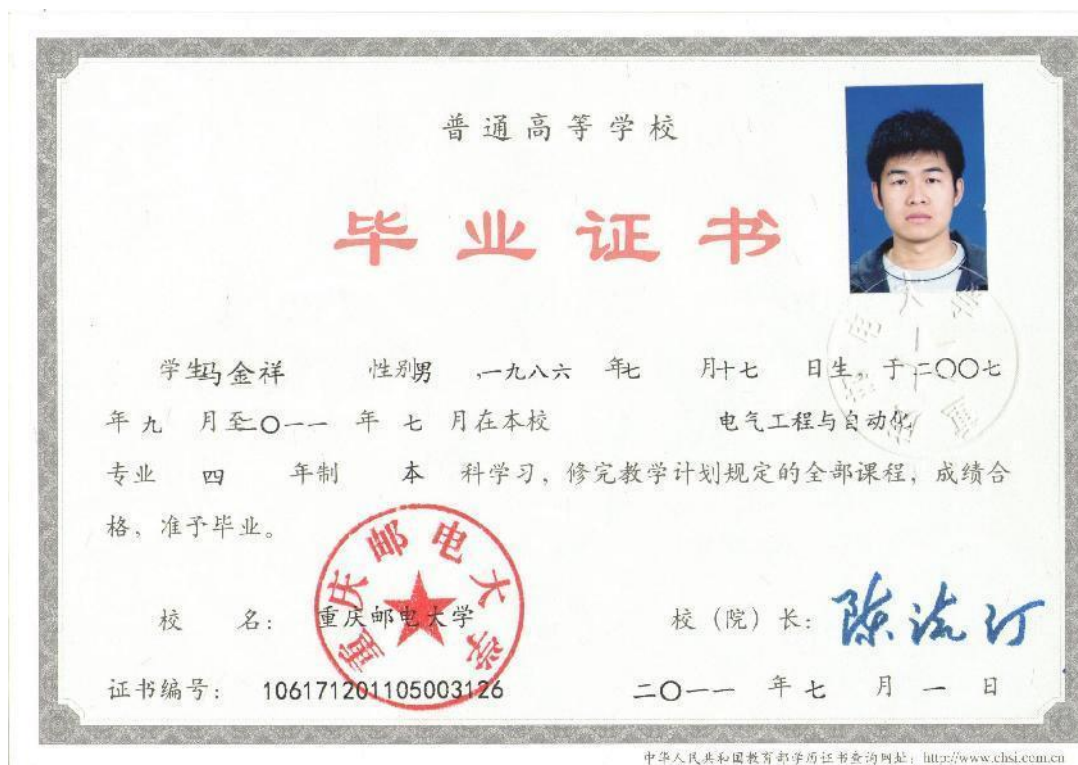 普通高等学校
毕业证书
学生马金祥 性别男 ,一九八六 年七 月十七 日生, 于二〇〇七
年九 月至二〇一一 年七 月在本校 电气工程与自动化
专业 四 年制 本 科学习, 修完教学计划规定的全部课程, 成绩合
格, 准予毕业。
重庆邮电大学
校 名: 重庆邮电大学 校(院)长: 陈流汀
证书编号: 106171201105003126 二〇一一 年 七 月 一 日
中华人民共和国教育部学历证书查询网址: http://www.chsi.com.cn